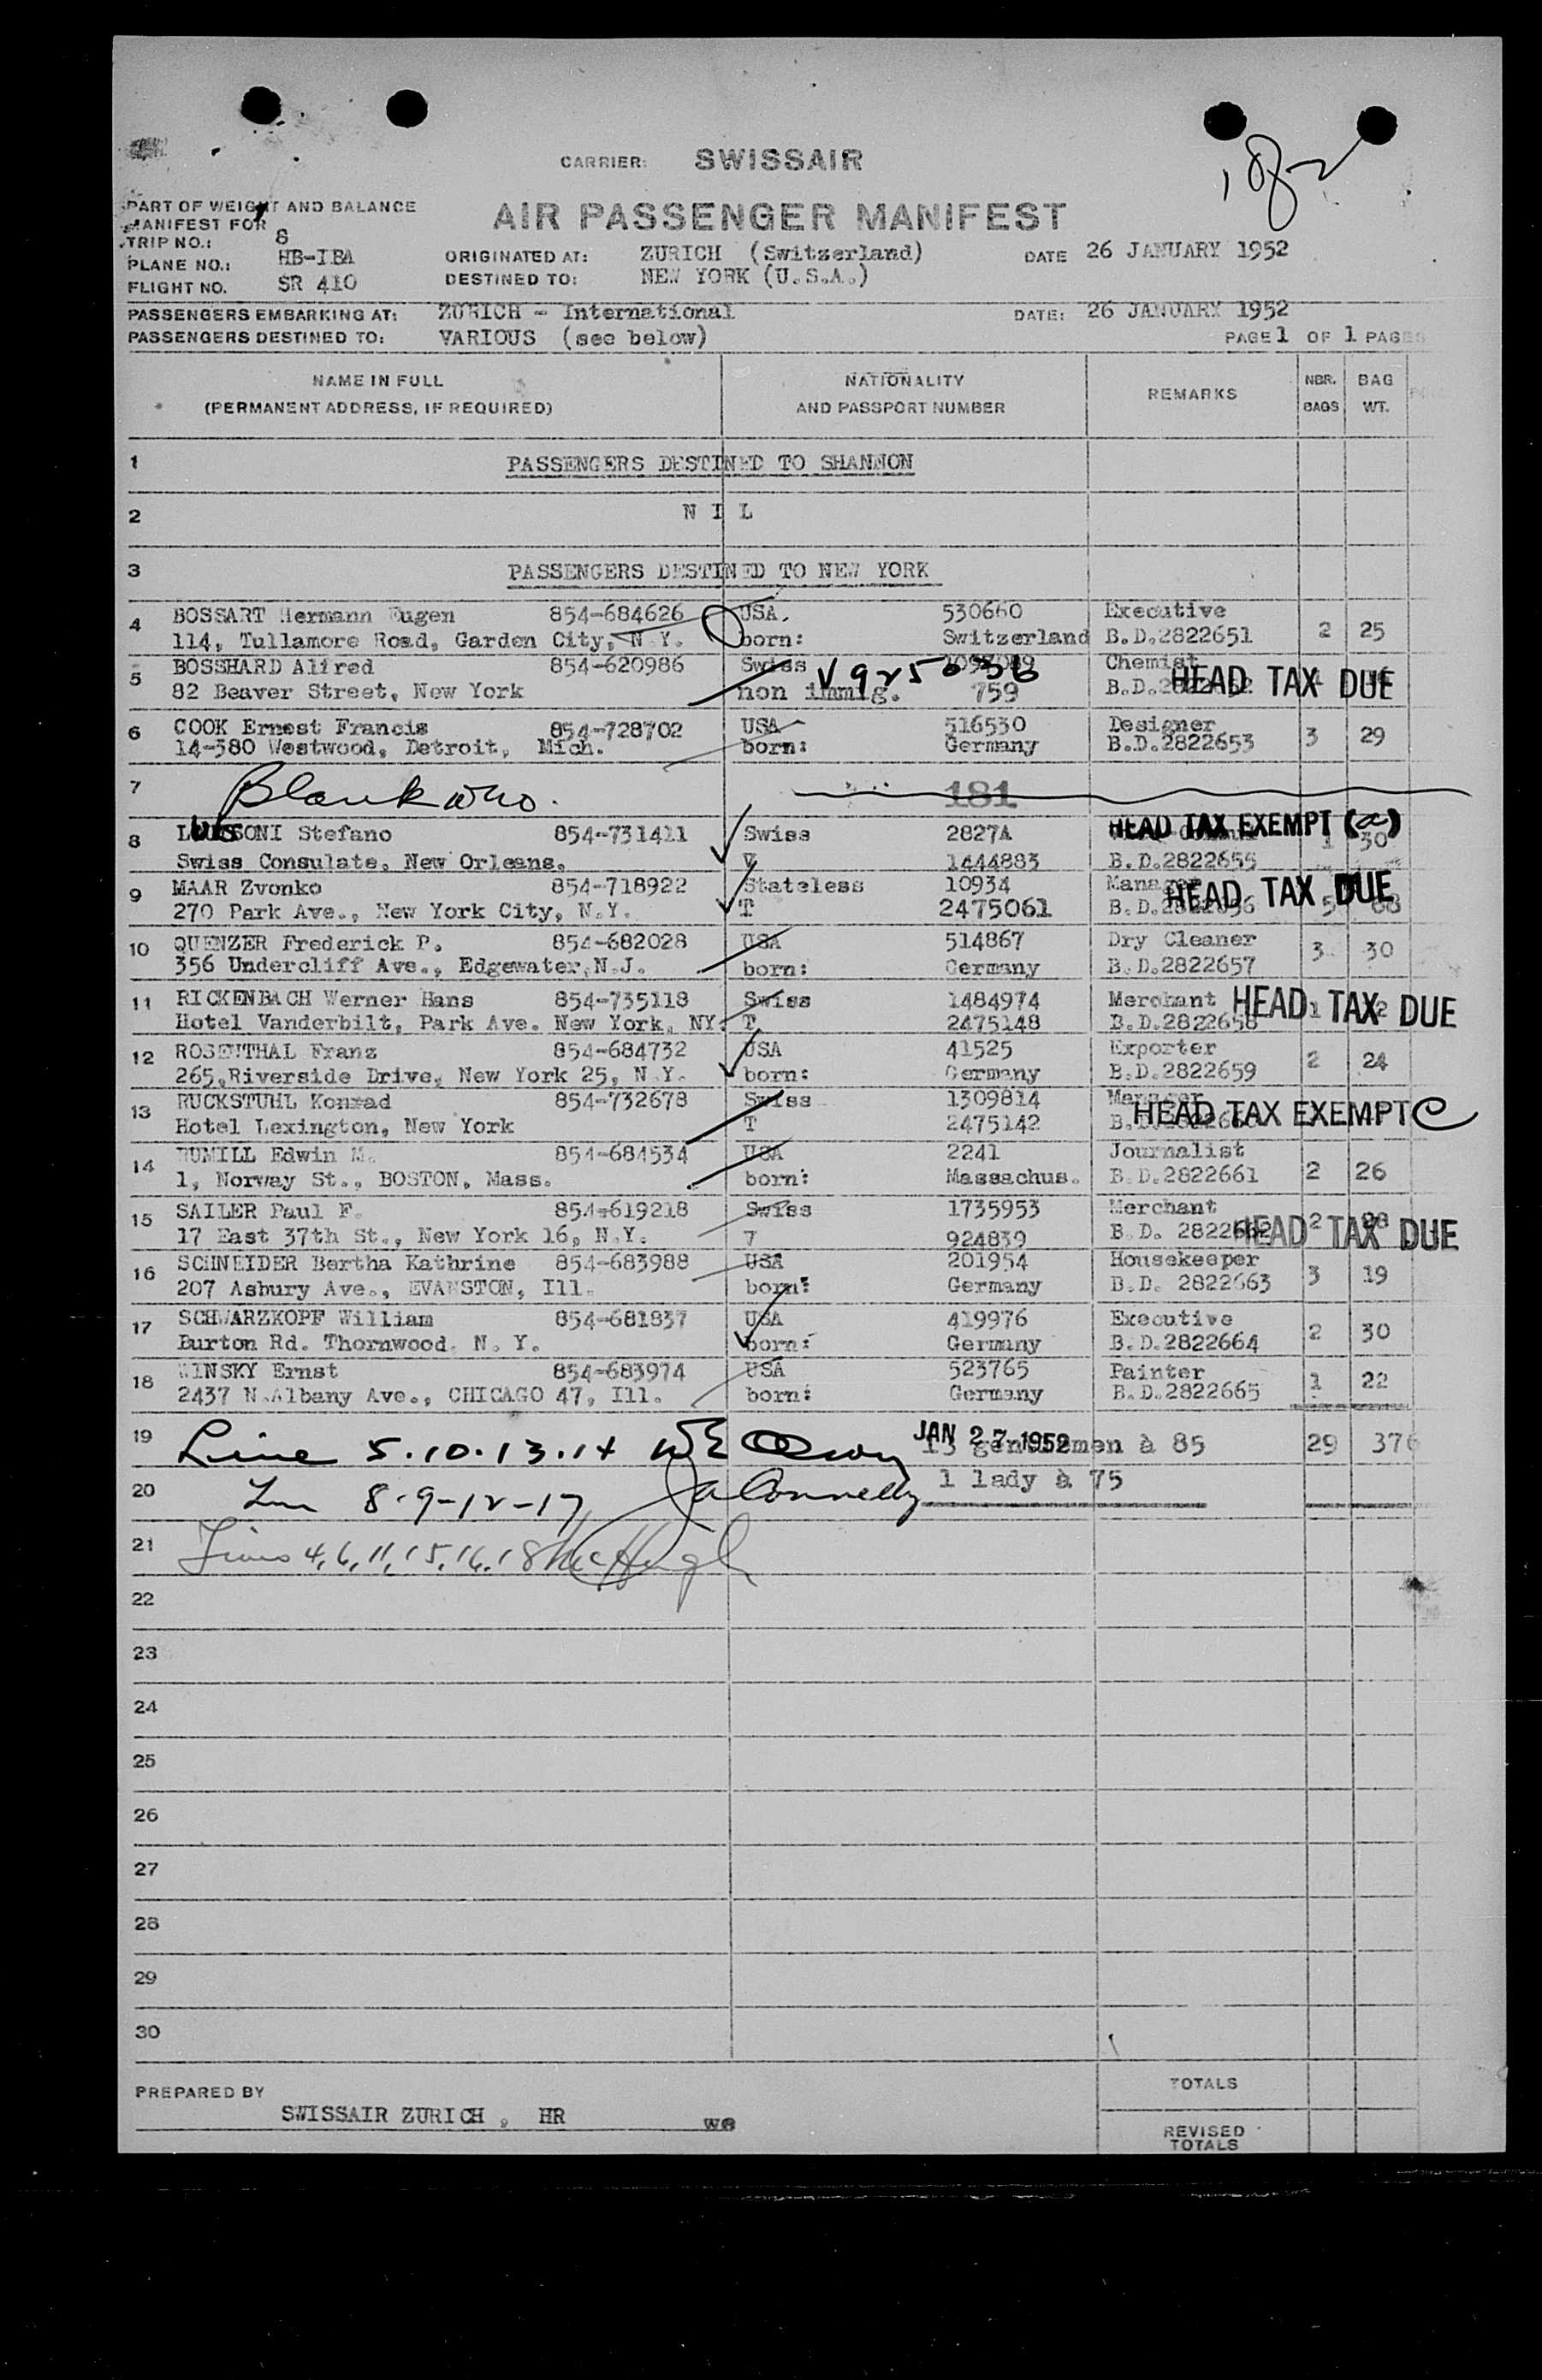 1 of 2
CARRIER: SWISSAIR
PART OF WEIGHT AND BALANCE
MANIFEST FOR
AIR PASSENGER MANIFEST
TRIP NO.: 8
PLANE NO.: HB-IBA ORIGINATED AT: ZURICH (Switzerland) DATE 26 JANUARY 1952
FLIGHT NO. SR 410 DESTINED TO: NEW YORK (U.S.A.)
PASSENGERS EMBARKING AT: ZURICH - International DATE: 26 JANUARY 1952
PASSENGERS DESTINED TO: VARIOUS (see below) PAGE 1 OF 1 PAGES
NAME IN FULL NATIONALITY REMARKS NBR. BAG
(PERMANENT ADDRESS, IF REQUIRED) AND PASSPORT NUMBER BAGS WT.
1 PASSENGERS DESTINED TO SHANNON
2 N I L
3 PASSENGERS DESTINED TO NEW YORK
4 BOSSART Hermann Eugen 854-684626 USA. 530660 Executive
114, Tullamore Road, Garden City, N.Y. born: Switzerland B.D.2822651 2 25
5 BOSSHARD Alfred 854-620986 Swiss V925036 Chemist
82 Beaver Street, New York non immig. 759 B.D. HEAD TAX DUE
6 COOK Ernest Francis 854-728702 USA 516530 Designer
14-380 Westwood, Detroit, Mich. born: Germany B.D.2822653 3 29
7 Blank 181
8 SONI Stefano 854-731411 Swiss 2827A HEAD TAX EXEMPT (a) 1 30
Swiss Consulate, New Orleans. V 1444883 B.D.2822655
9 MAAR Zvonko 854-718922 Stateless 10934 Manager HEAD TAX DUE
270 Park Ave., New York City, N.Y. T 2475061 B.D. 5
10 QUENZER Frederick P. 854-682028 USA 514867 Dry Cleaner
356 Undercliff Ave., Edgewater,N.J. born: Germany B.D.2822657 3 30
11 RICKENBACH Werner Hans 854-735118 Swiss 1484974 Merchant HEAD TAX DUE
Hotel Vanderbilt, Park Ave. New York, NY. T 2475148 B.D.2822658
12 ROSENTHAL Franz 854-684732 USA 41525 Exporter
265,Riverside Drive, New York 25, N.Y. born: Germany B.D.2822659 2 24
13 RUCKSTUHL Konrad 854-732678 Swiss 1309814 Manager
Hotel Lexington, New York T 2475142 HEAD TAX EXEMPT C
14 RUMILL Edwin M. 854-684534 USA 2241 Journalist
1, Norway St., BOSTON, Mass. born: Massachus. B.D.2822661 2 26
15 SAILER Paul F. 854-619218 Swiss 1735953 Merchant
17 East 37th St., New York 16, N.Y. 7 924839 B.D. 2822662 2 28 HEAD TAX DUE
16 SCHNEIDER Bertha Kathrine 854-683988 USA 201954 Housekeeper
207 Asbury Ave., EVANSTON, Ill. born: Germany B.D. 2822663 3 19
17 SCHWARZKOPF William 854-681837 USA 419976 Executive
Burton Rd. Thornwood. N. Y. born: Germany B.D.2822664 2 30
18 WINSKY Ernst 854-683974 USA 523765 Painter
2437 N.Albany Ave., CHICAGO 47, Ill. born: Germany B.D.2822665 1 22
19 Line 5.10.13.14 JAN 27 1952 13 gentlemen à 85 29 376
20 8-9-12-17 JA Connelly 1 lady à 75
21 Lines 4, 6, 11, 15, 16, 18 McHugh
22
23
24
25
26
27
28
29
30
PREPARED BY TOTALS
SWISSAIR ZURICH , HR we
REVISED
TOTALS